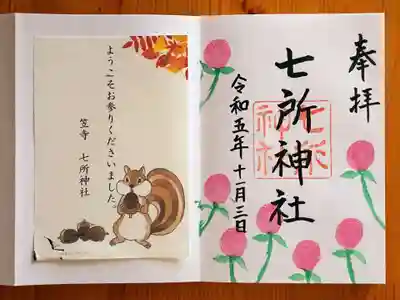 奉拝
七所神社
令和五年十一月三日
七所
神社
ようこそお参りくださいました。
笠寺 七所神社